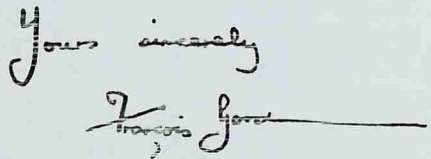 Yours sincerely
François